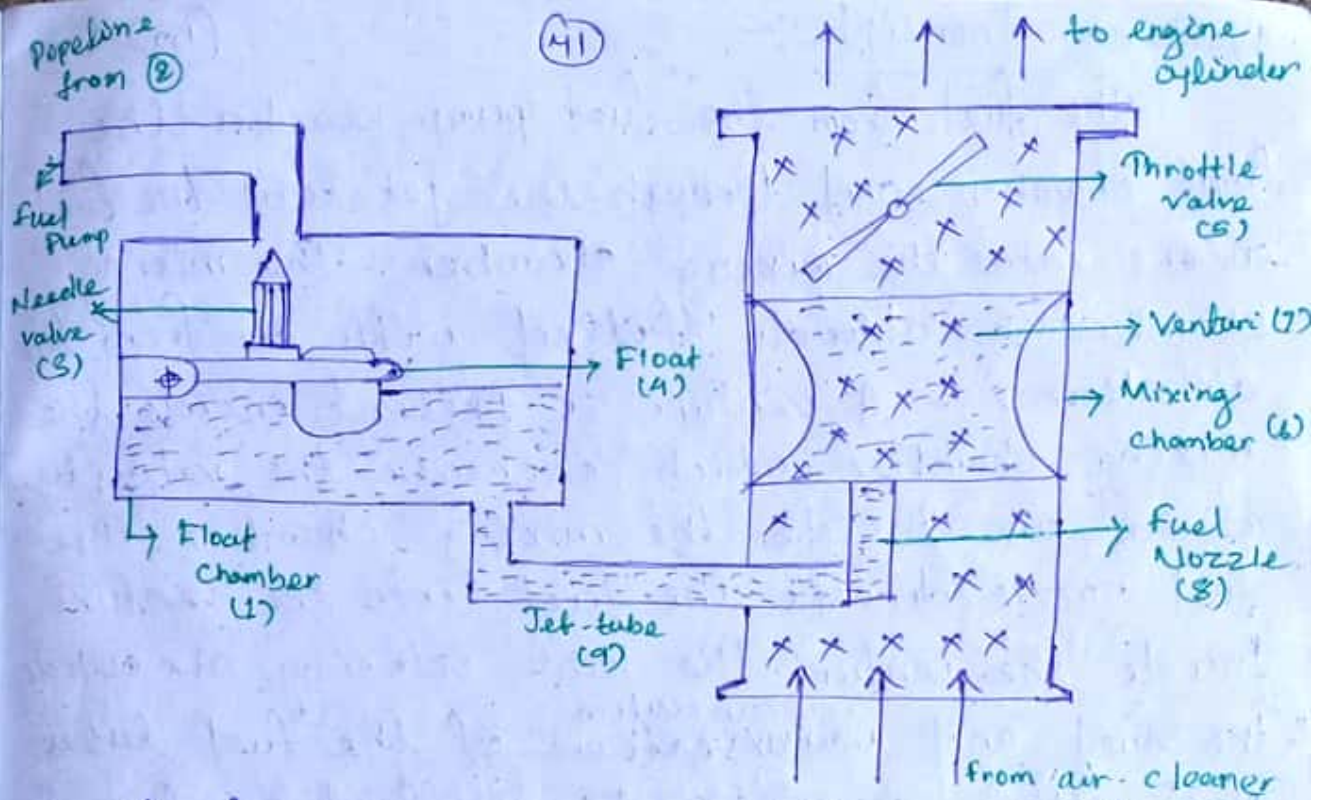 Popeline
from ②
41
to engine
cylinder
Fuel
Pump
Needle
valve
(3)
Float
(4)
Throttle
valve
(5)
Venturi (7)
Mixing
chamber (6)
Float
chamber
(1)
Jet-tube
(9)
Fuel
Nozzle
(8)
from air-cleaner